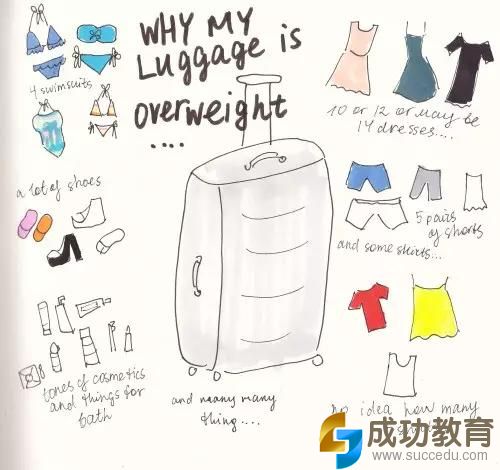 WHY MY
LUGGAGE is
OVERWEIGHT
....
4 swimsuits
10 or 12 or may be
14 dresses....
a lot of shoes
5 pairs
of shorts
and some skirts...
tones of cosmetics
and things for
bath
and many many
thing....
no idea how many
成功教育
www.succedu.com